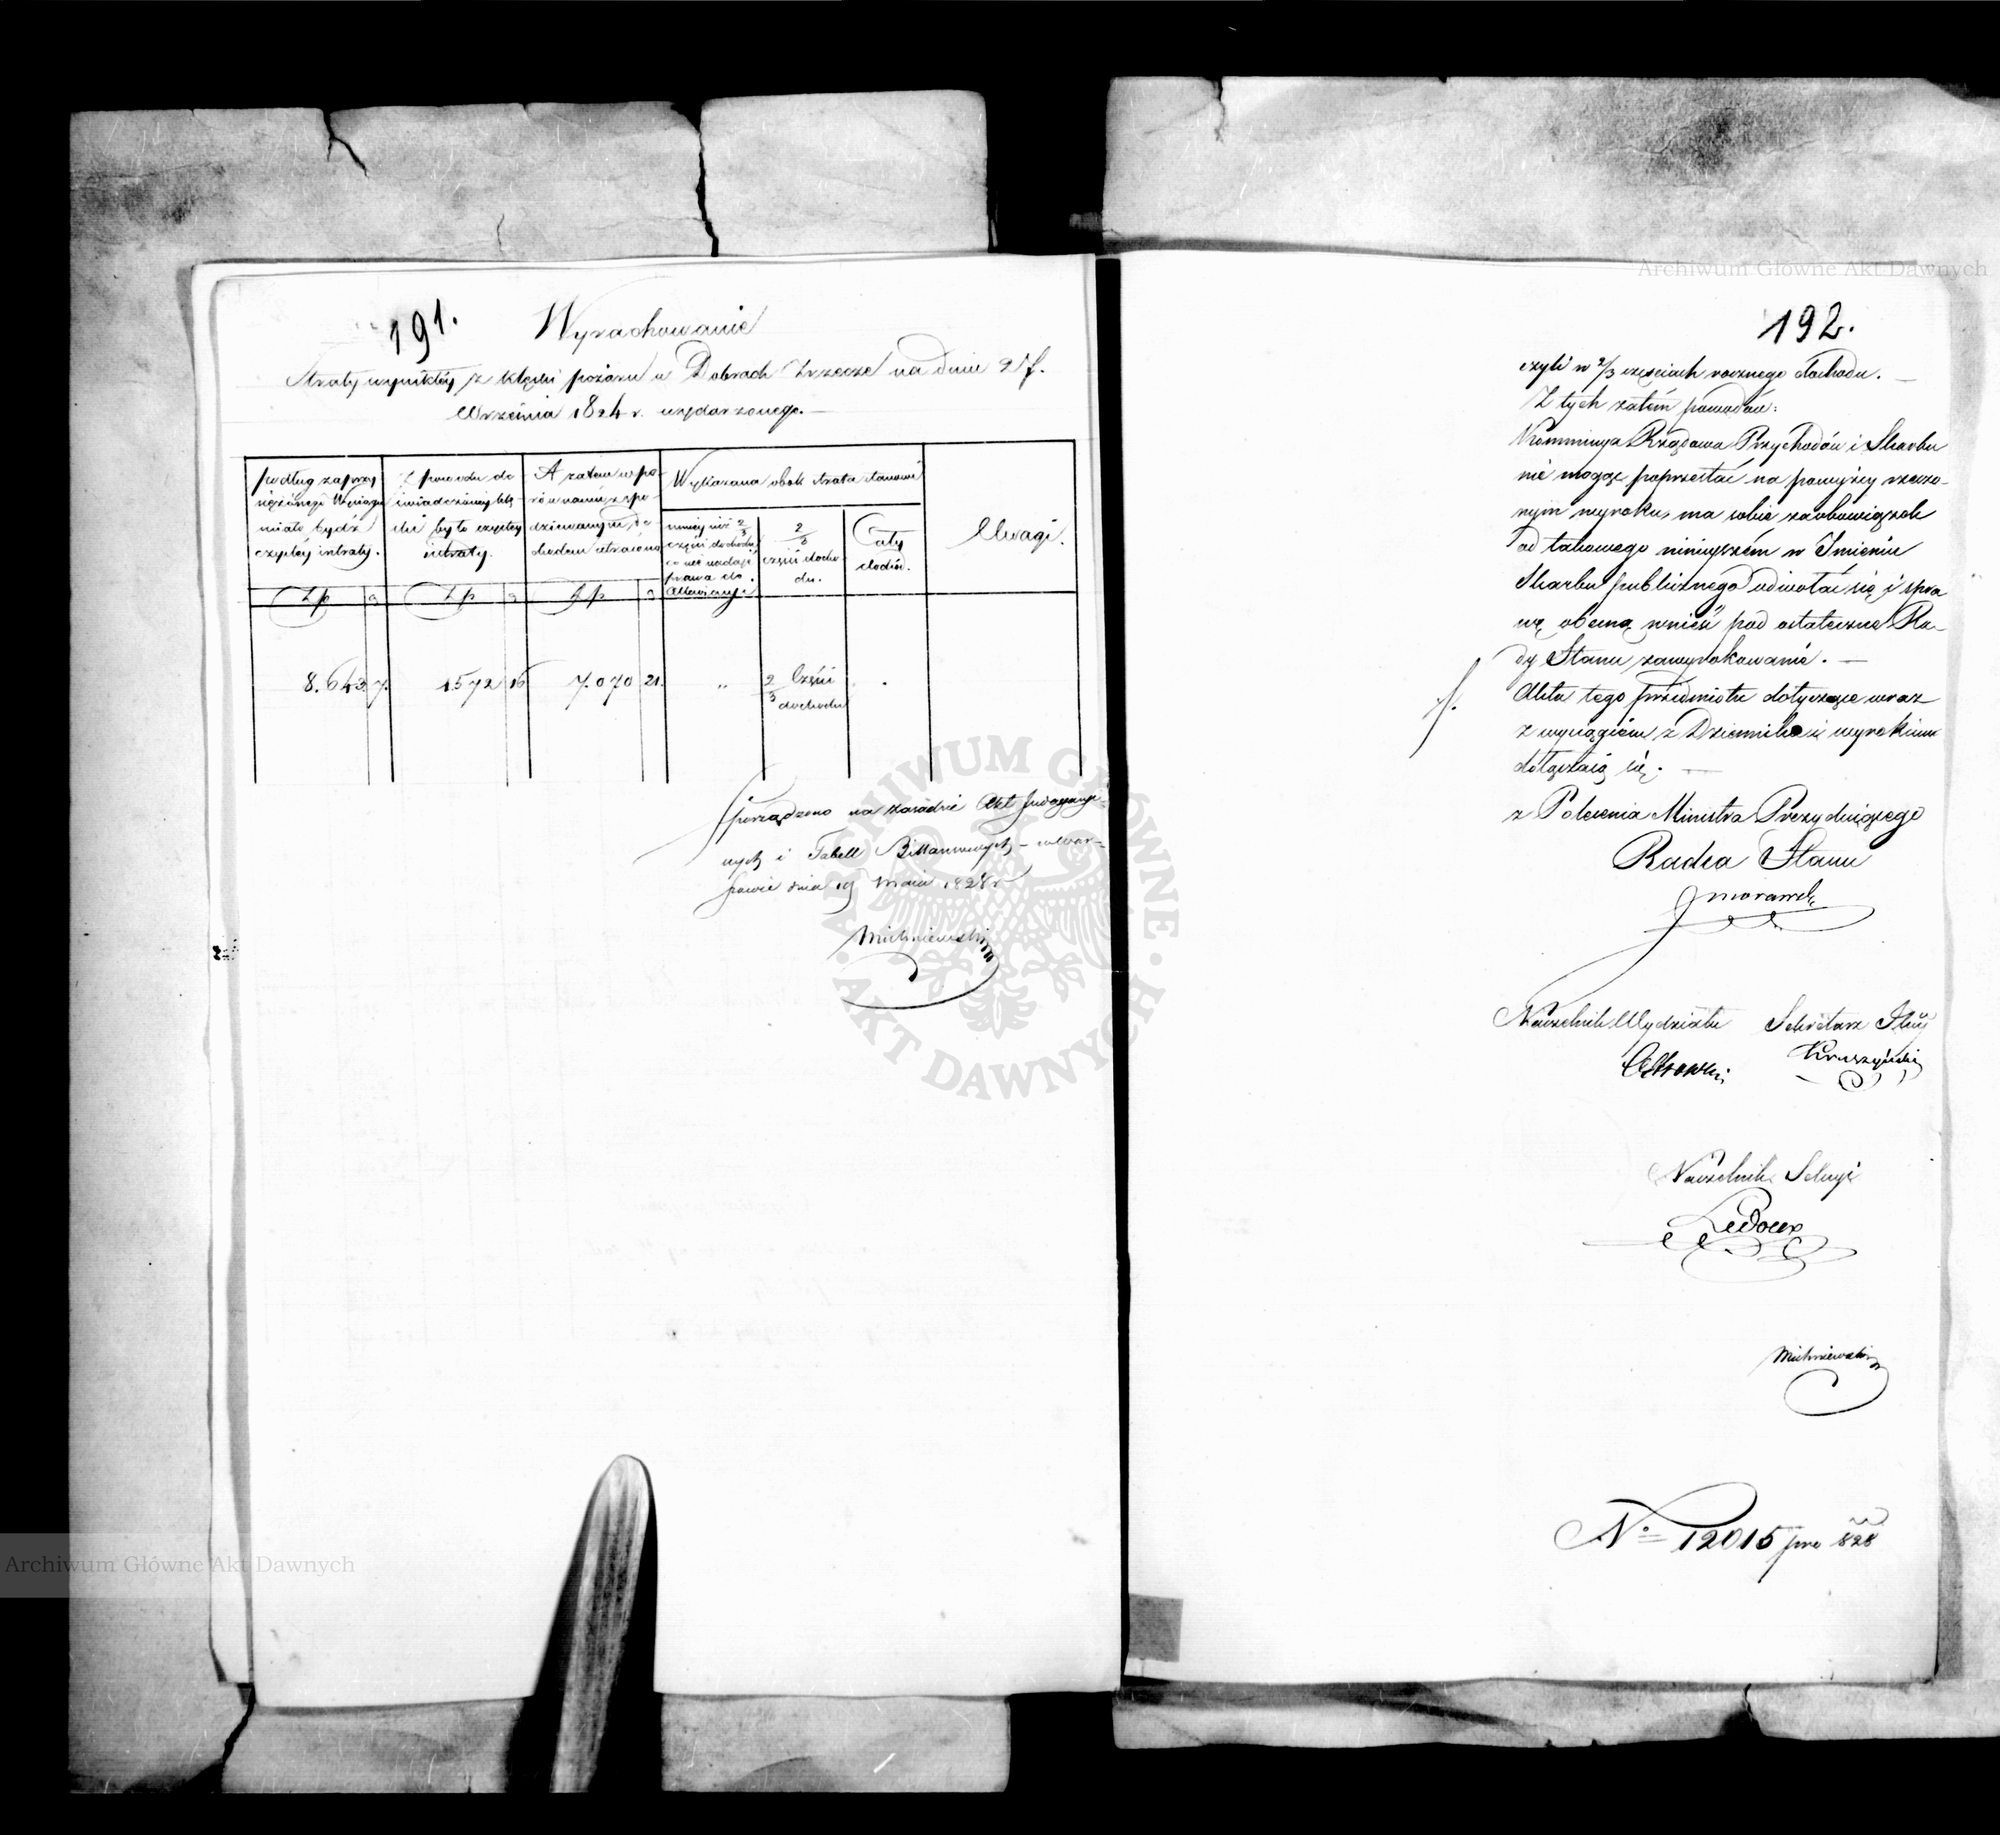 191.
Wyrachowanie
Straty wynikłéy z klęski pożaru w Dobrach Zrzecze na dniu 27.
Września 1824 r. wydarzonego. —
podług zaprzy
siężonego Wyciągu
miało bydź
czystéy intraty.
Z powodu do
świadczonéy klę
ski było czystéy
intraty.
A zatem w po-
równaniu z spo-
dziewanym do
chodem utracono
Wykazana obok strata stanowi
mniéy niż 2/3
części dochodu,
co nie nadaje
prawa do
allewiacyi
2/3
części docho
du.
Cały
dochód.
Uwagi.
Złp g Złp g Złp g
8.643 7. 1572 16 7.070 21. „ 2/3 Części
dochodu
Sporządzono na zasadzie Akt Indagacyi-
nych i Tabell Bilansowych — w War-
szawie dnia 19 Maia 1828 r
Michniewski
192.
czyli w 2/3 częściach rocznego dochodu. —
Z tych zatém powodów:
Kommissya Rządowa Przychodów i Skarbu
nie mogąc poprzestać na powyżéy rzeczo-
nym wyroku, ma sobie za obowiązek
od takowego ninieyszém w Imieniu
Skarbu publicznego odwołać się i spra
wę obecną wnieść pod ostateczne Ra-
dy Stanu zawyrokowanie. —
Akta tego przedmiotu dotyczące wraz
z wyciągiem z Dziennika i wyrokiem
dołączaią się. —
z Polecenia Ministra Prezyduiącego
Radca Stanu
Morawski
Naczelnik Wydziału Sekretarz Jlny
Ostrowski Kruszyński
Naczelnik Sekcyi
Ledoux
Michniewski
No 12015 pro 828
Archiwum Główne Akt Dawnych
Archiwum Główne Akt Dawnych
ARCHIWUM GŁÓWNE · AKT DAWNYCH ·